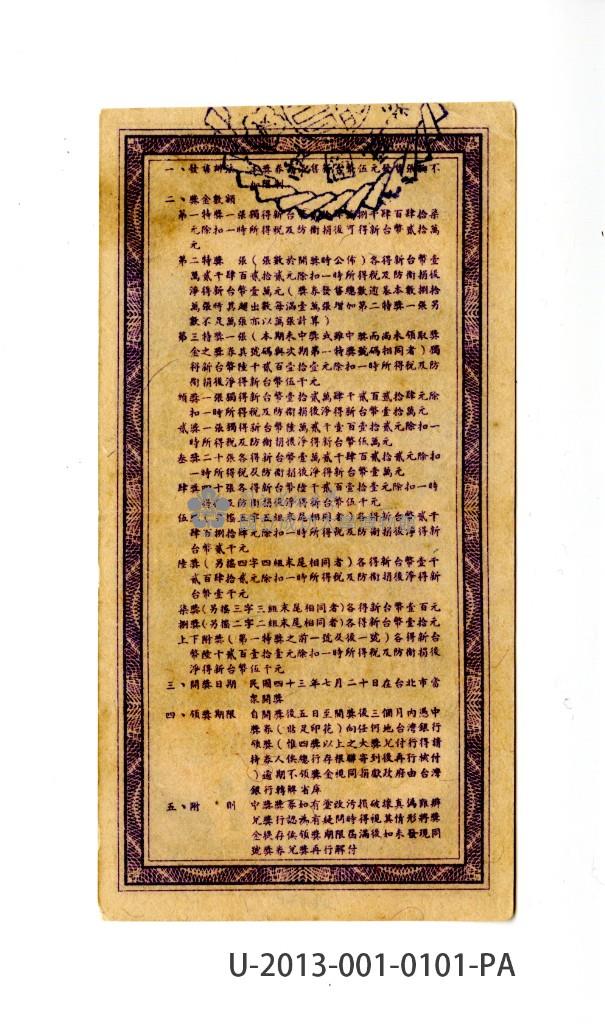 一、發售辦法
二、獎金數額
第一特獎一張獨得新台
元除扣一時所得稅及防衛捐後可得新台幣貳拾萬
元
第二特獎 張（張數於開獎時公佈）各得新台幣壹
萬貳千肆百貳拾貳元除扣一時所得稅及防衛捐後
淨得新台幣壹萬元（獎券發售總數逾卷本數捌拾
萬張所其超出數每滿壹萬張增加第二特獎一張另
數不足萬張亦以萬張計算）
第三特獎一張（本期未中獎或雖中獎而尚未領取獎
金之獎券其號碼與次期第一特獎號碼相同者）獨
得新台幣陸千貳百壹拾壹元除扣一時所得稅及防
衛捐後淨得新台幣伍千元
頭獎一張獨得新台幣壹拾貳萬肆千貳百貳拾肆元除
扣一時所得稅及防衛捐後淨得新台幣壹拾萬元
貳獎一張獨得新台幣陸萬貳千壹百壹拾貳元除扣一
時所得稅及防衛捐後淨得新台幣伍萬元
叁獎二十張各得新台幣壹萬貳千肆百貳拾貳元除扣
一時所得稅及防衛捐後淨得新台幣壹萬元
肆獎四十張各得新台幣陸千貳百壹拾壹元除扣一時
所得稅及防衛捐後淨得新台幣伍千元
伍獎（另搖五字五組末尾相同者）各得新台幣貳千
肆百捌拾肆元除扣一時所得稅及防衛捐後淨得新
台幣貳千元
陸獎（另搖四字四組末尾相同者）各得新台幣壹千
貳百肆拾貳元除扣一時所得稅及防衛捐後淨得新
台幣壹千元
柒獎(另搖三字三組末尾相同者)各得新台幣壹百元
捌獎(另搖二字二組末尾相同者)各得新台幣壹拾元
上下附獎（第一特獎之前一號及後一號）各得新台
幣陸千貳百壹拾壹元除扣一時所得稅及防衛捐後
淨得新台幣伍千元
三、開獎日期 民國四十三年七月二十日在台北市當
眾開獎
四、領獎期限 自開獎後五日至開獎後三個月內憑中
獎券（貼足印花）向任何地台灣銀行
領獎（惟四獎以上之大獎兌付行得請
持券人俟總行存根聯寄到後再行核付
）逾期不領獎金視同捐獻政府由台灣
銀行轉解省庫
五、附則 中獎獎券如有塗改污損破壞真偽難辨
兌獎行認為有疑問時得視其情形將獎
金提存俟領獎期限屆滿後如未發現同
號獎券兌獎再行解付
U-2013-001-0101-PA